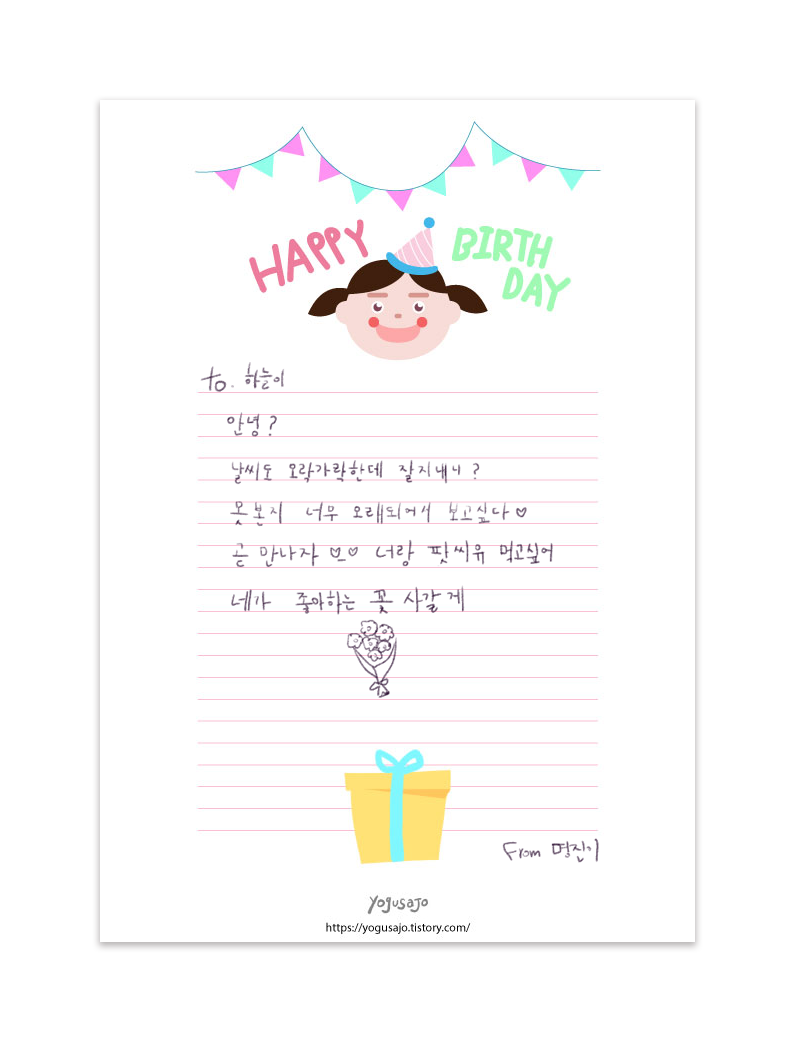 HAPPY BIRTH DAY
to. 하늘이
안녕?
날씨도 오락가락한데 잘지내니?
못본지 너무 오래되어서 보고싶다♡
곧 만나자 ♡_♡ 너랑 팟씨유 먹고싶어
네가 좋아하는 꽃 사갈게
From 명진이
yogusajo
https://yogusajo.tistory.com/